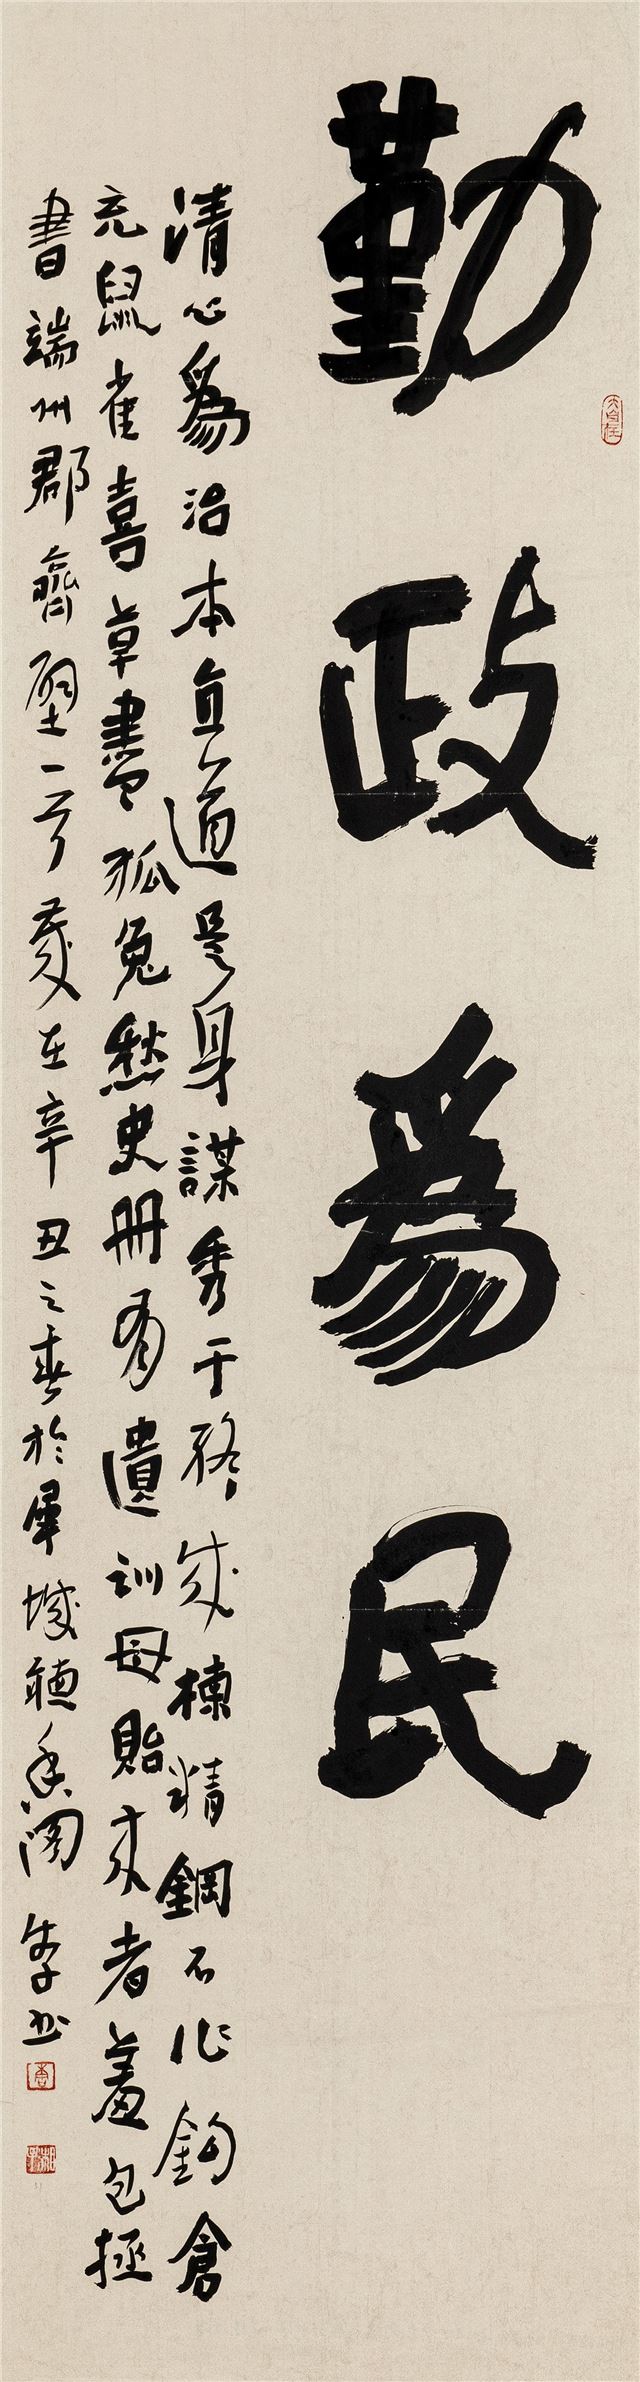 勤政為民
清心為治本直道是身謀秀干終成棟精鋼不作鈎倉
充鼠雀喜草盡狐兔愁史冊有遺訓毋貽來者羞包拯
書端州郡齋壁一首歲在辛丑之春於城聽香閣书
大自在